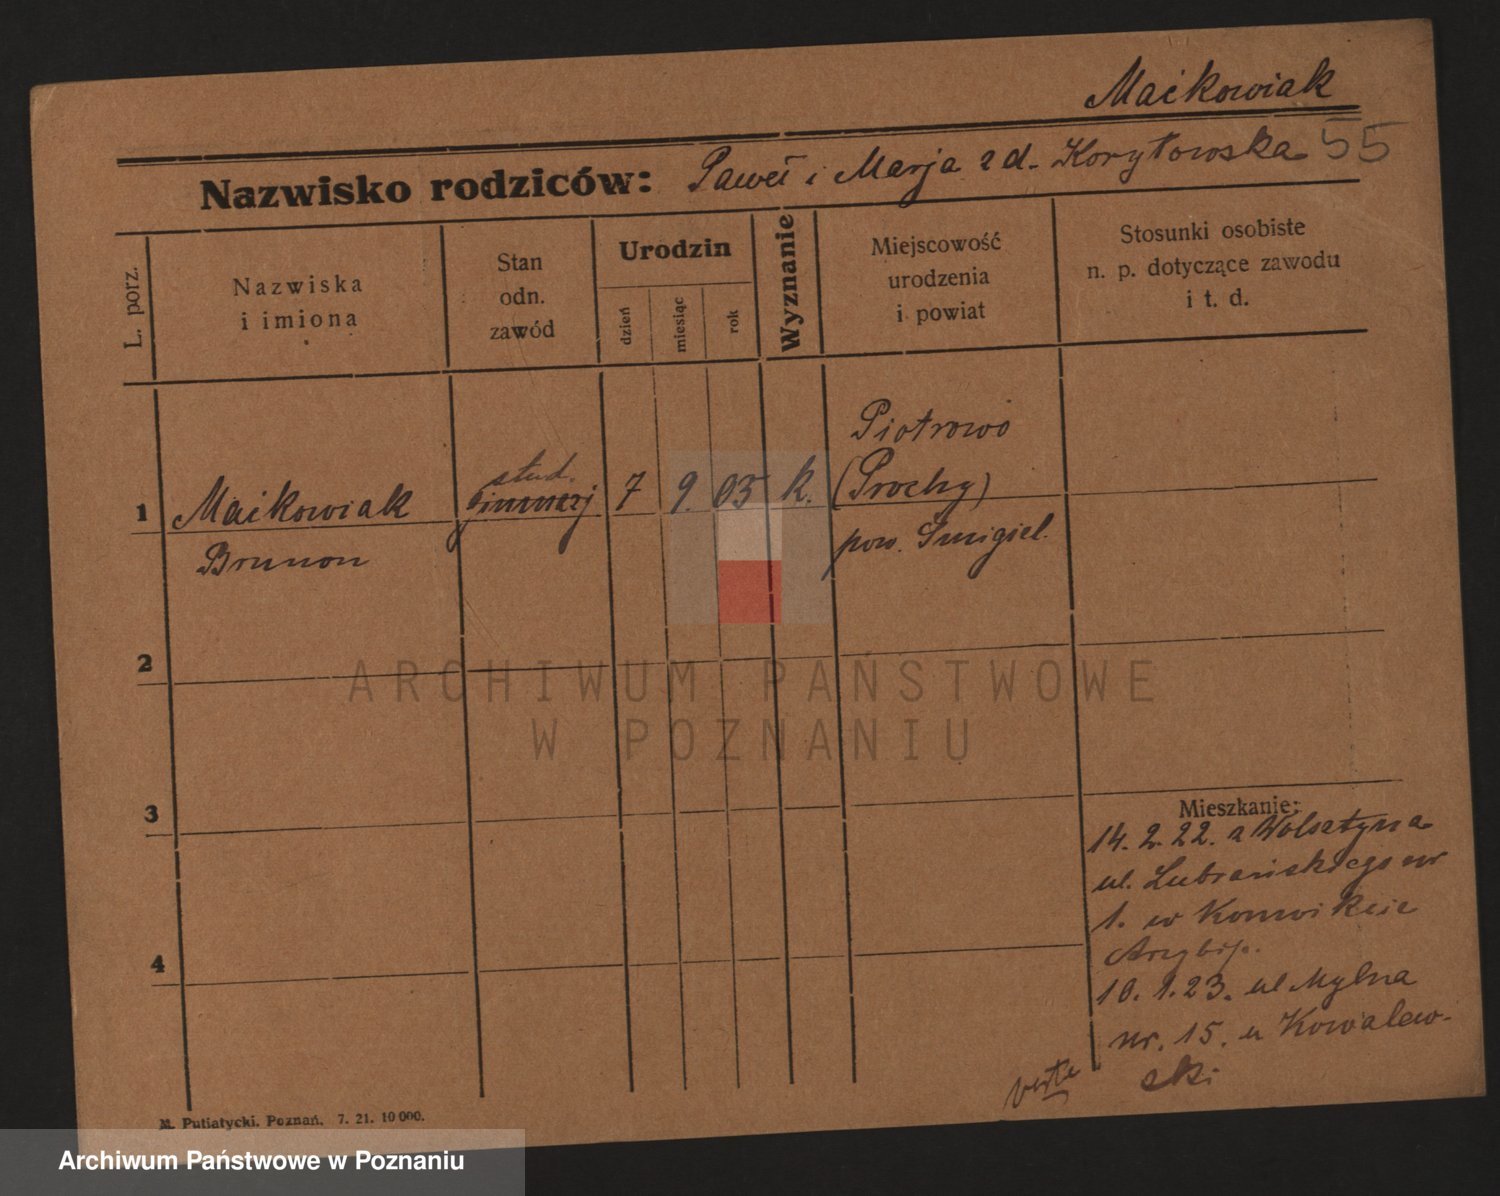 Maćkowiak
Nazwisko rodziców: Paweł i Marja z d. Korytowska 55
L. porz.
Nazwiska
i imiona
Stan
odn.
zawód
Urodzin
dzień
miesiąc
rok
Wyznanie
Miejscowość
urodzenia
i powiat
Stosunki osobiste
n. p. dotyczące zawodu
i t. d.
1 Maćkowiak
Brunon
stud.
gimnazj
7 9. 03 k.
Piotrowo
(Prochy)
pow. Śmigiel.
2
3
4
Mieszkanie:
14. 2. 22. z Wolsztyna
ul. Lubrańskiego nr
1. w Konwikcie
Arcybisk.
10. 1. 23. ul Mylna
nr. 15. u Kowalew-
ski
verte
M. Putiatycki. Poznań. 7. 21. 10 000.
ARCHIWUM PAŃSTWOWE
W POZNANIU
Archiwum Państwowe w Poznaniu